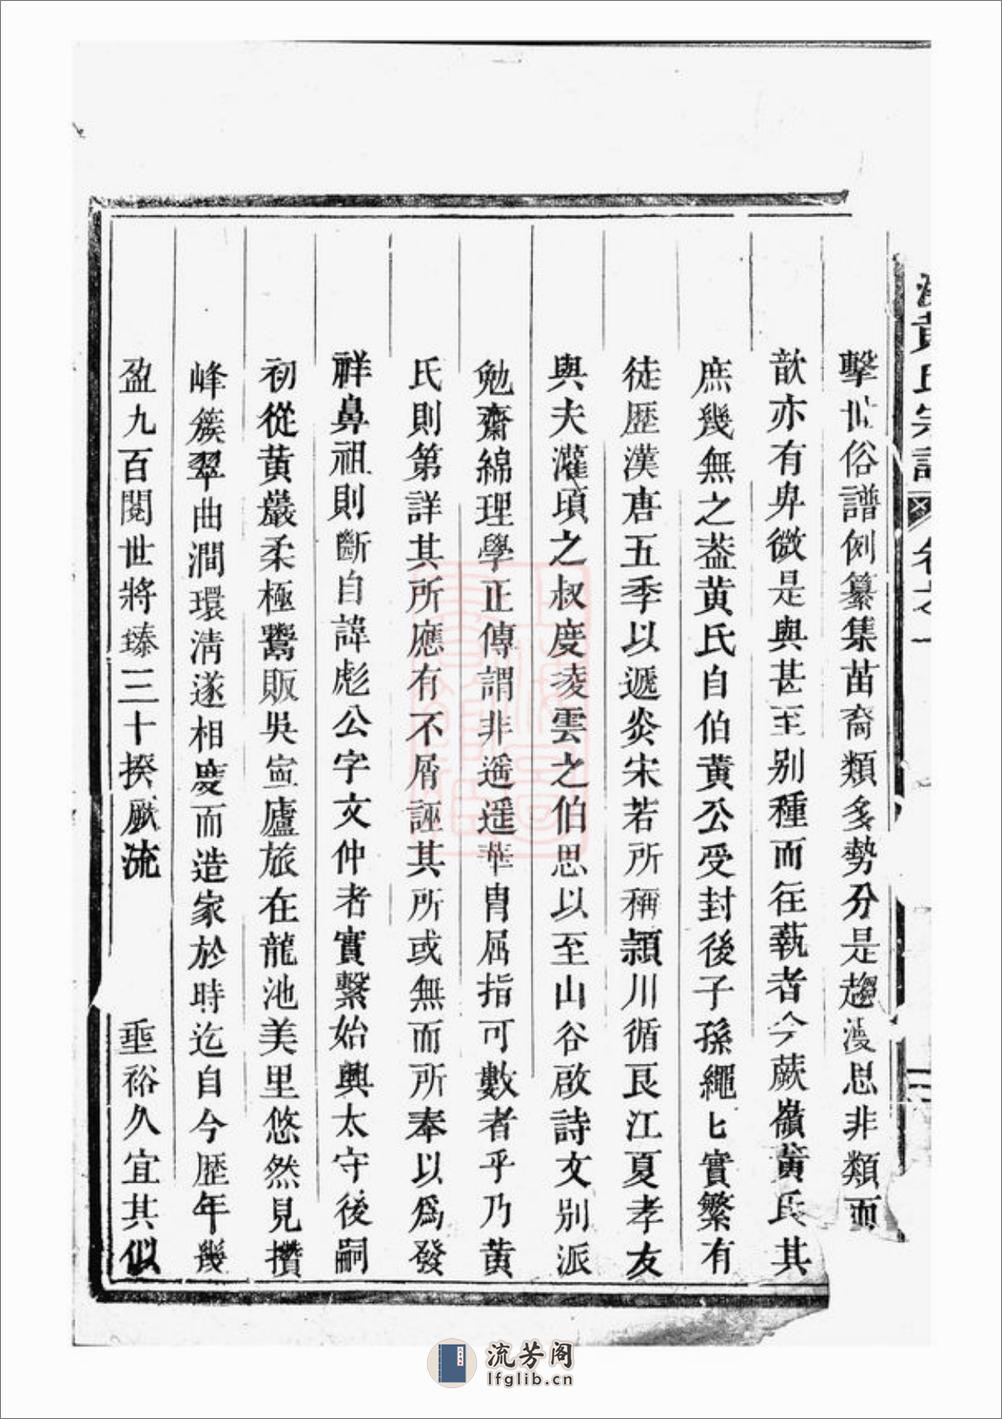 黄氏宗譜 卷之一
擊世俗譜例纂集苗裔類多勢分是趨漫思非類而
歆亦有卑微是與甚至別種而往執者今蕨嶺黄氏其
庶幾無之葢黄氏自伯黄公受封後子孫繩匕實繁有
徒歷漢唐五季以遞炎宋若所稱頴川循良江夏孝友
與夫灌頃之叔度凌雲之伯思以至山谷啟詩文別派
勉齋綿理學正傳謂非遥遥華胄屈指可數者乎乃黄
氏則第詳其所應有不屑誣其所或無而所奉以爲發
祥鼻祖則斷自諱彪公字文仲者實繫始興太守後嗣
初從黄巖柔極鬻販吳寍廬旅在龍池美里悠然見攢
峰簇翠曲澗環清遂相慶而造家於時迄自今歷年幾
盈九百閱世將臻三十揆厥流 垂裕久宜其似
流芳阁
lfglib.cn